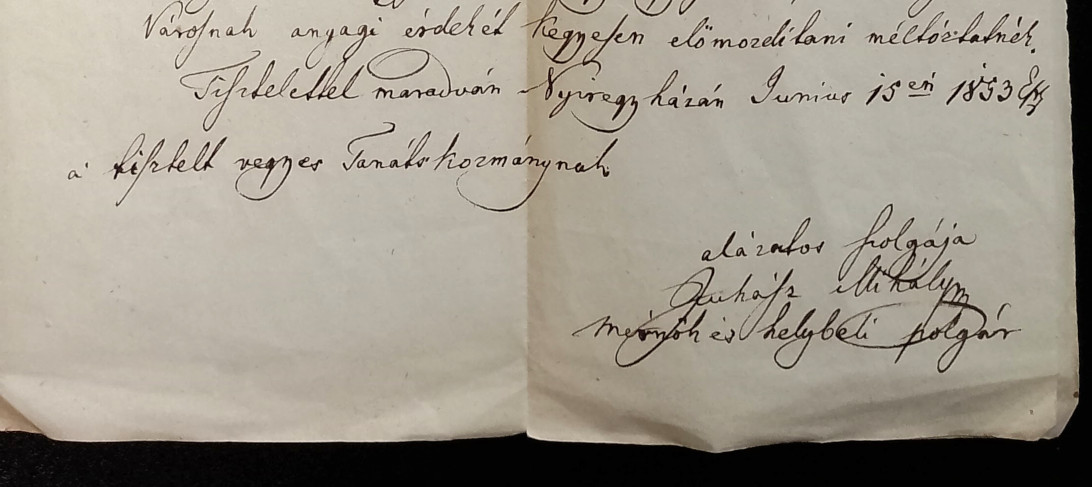 Városnak anyagi érdekét kegyesen előmozdítani méltóztatnék.
Tisztelettel maradván Nyiregyházán Junius 15én 1853
a' tisztelt vegyes Tanáts kormánynak
alázatos szolgája
Juhász Mihály
mérnök és helybeli polgár